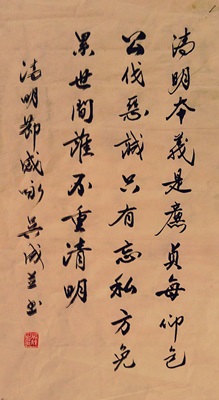 清明本義是廉貞每仰包
公伐惡誠只有忘私方免
累世間誰不重清明
清明鄭咏吳成书